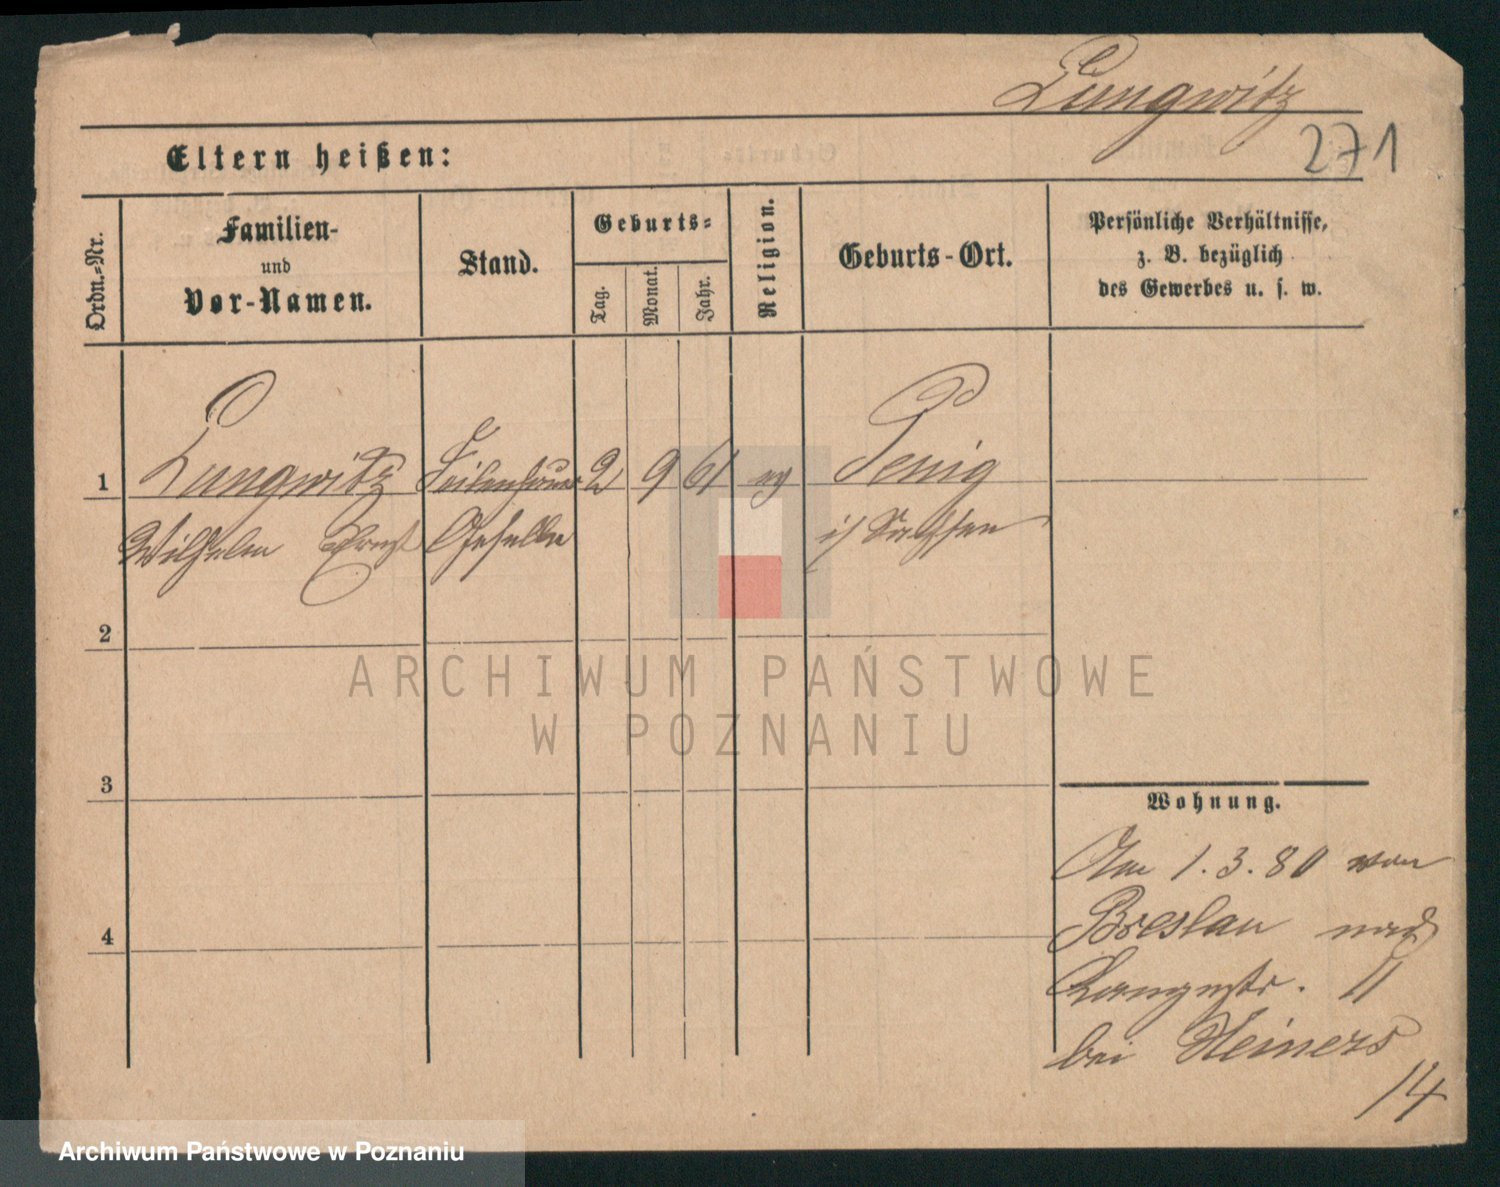 Lungwitz
271
Eltern heißen:
Ordn.-Nr.
Familien-
und
Vor-Namen.
Stand.
Geburts-
Tag.
Monat.
Jahr.
Religion.
Geburts-Ort.
Persönliche Verhältnisse,
z. B. bezüglich
des Gewerbes u. s. w.
1 Lungwitz Feilenhauer 2 9 61 ev Penig
Wilhelm Ernst Geselle i/ Sachsen
2
3
4
Wohnung.
Am 1.3.80 von
Breslau nach
11
bei Heiners
14
ARCHIWUM PAŃSTWOWE
W POZNANIU
Archiwum Państwowe w Poznaniu